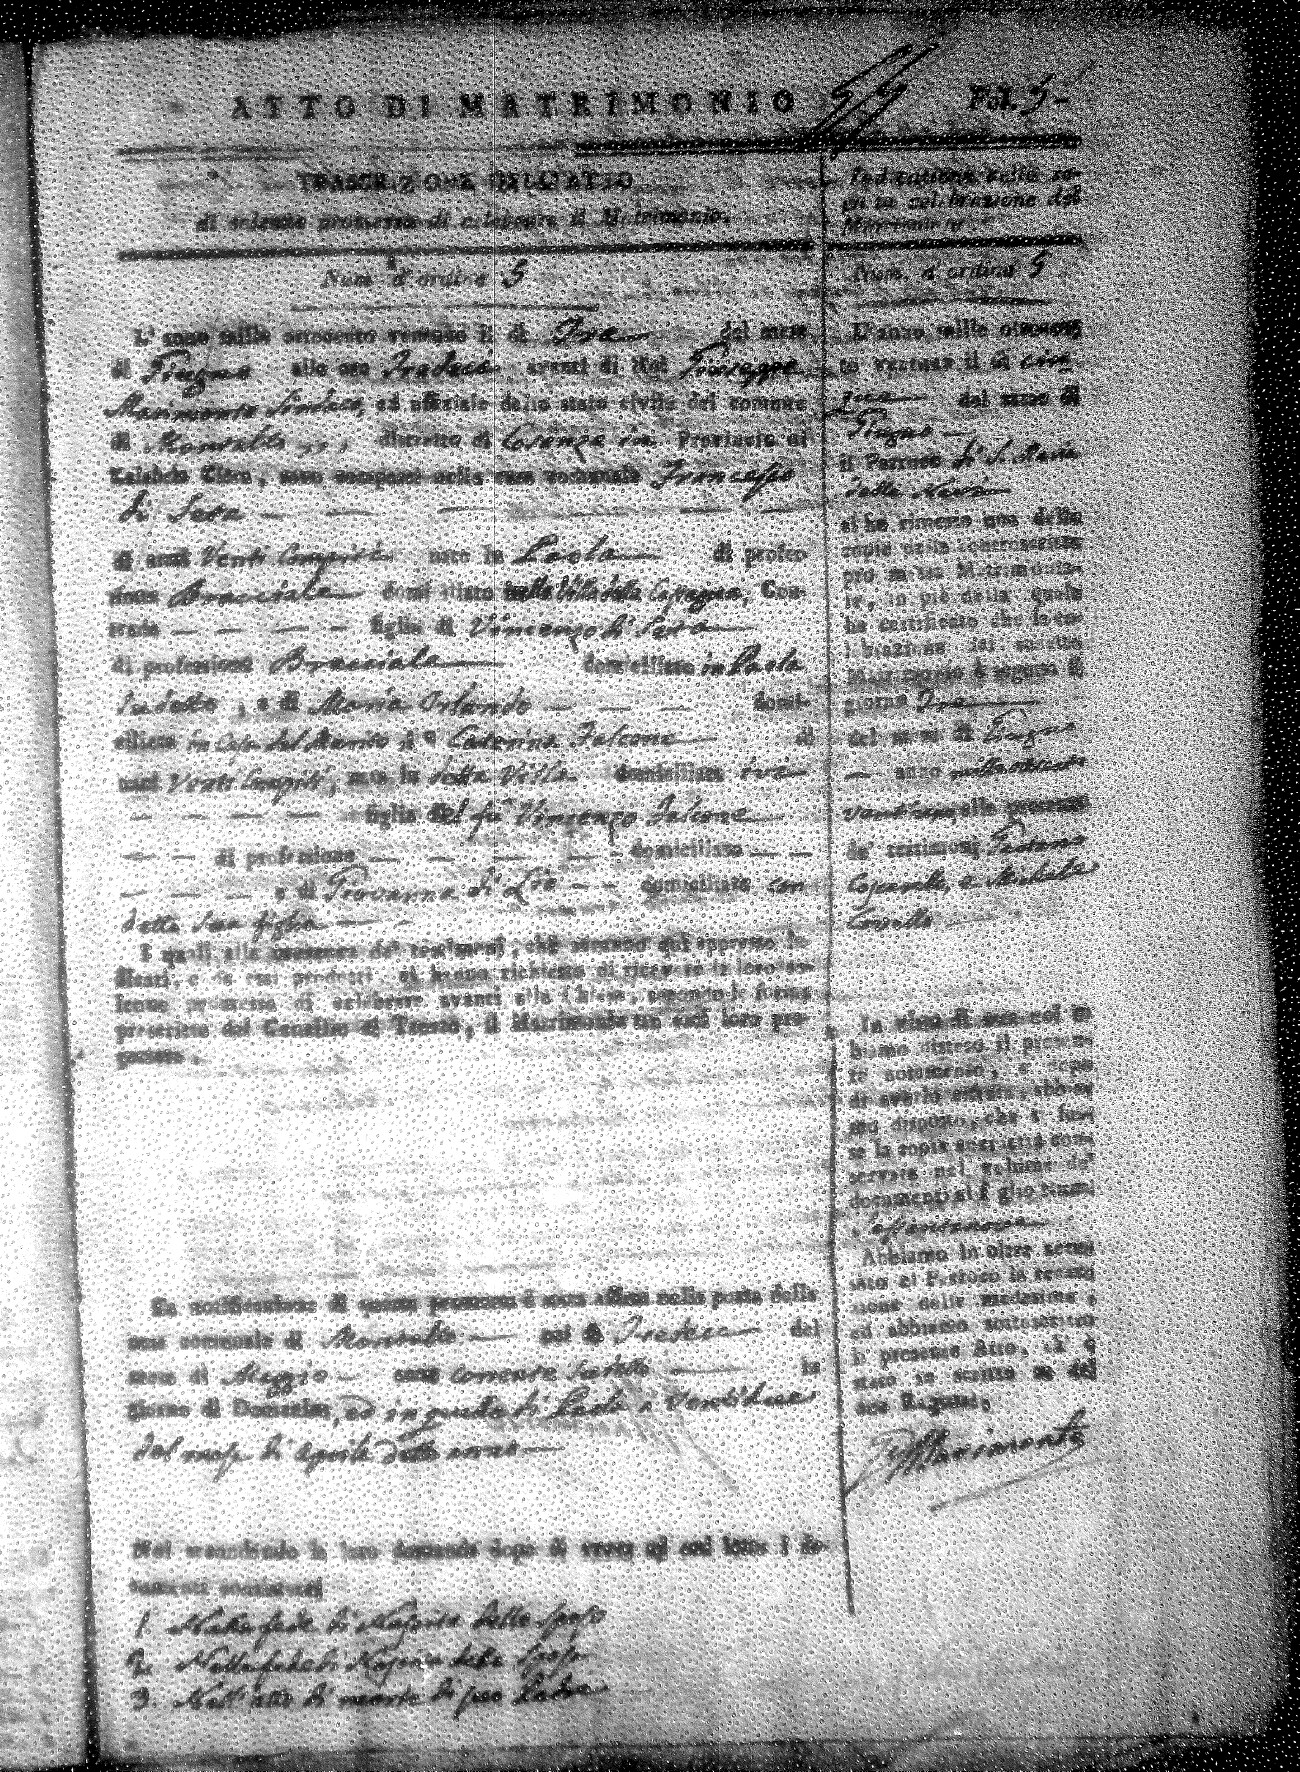 ATTO DI MATRIMONIO
Fol. 5-
TRASCRIZIONE DELL'ATTO
di solenne promessa di celebrare il Matrimonio.
Num. d'ordine 5
L'anno mille ottocento ventuno li dì Tre del mese
di Giugno alle ore Tredeci avanti di Noi Giuseppe
Marimonte Sindaco, ed uffiziale dello stato civile del comune
di Montalto distretto di Cosenza in Provincia di
Calabria Citra, sono comparsi nella casa comunale Francesco
di Seta
di anni Venti Cinque nato in Paola di profes-
sione Bracciale domiciliato nella Villa della Con-
trada figlio di Vincenzo di Seta
di professione Bracciale domiciliato in Paola
sudetto, e di Maria Orlando domi-
ciliata in Casa del Marito e Caterina Falcone di
anni Venti nata in detta Villa domiciliata ivi
figlia del fu Vincenzo Falcone
di professione domiciliato
e di Giovanna di Lio domiciliata con
detta sua figlia
I quali alla presenza de' testimonj, che saranno qui appresso in-
dicati, e da essi prodotti, ci hanno richiesto di ricevere la loro so-
lenne promessa di celebrare avanti alla Chiesa, secondo le forme
prescritte dal Concilio di Trento, il Matrimonio tra essi loro pro-
gettato.
La notificazione di questa promessa è stata affissa nella porta della
casa comunale di Montalto nel dì Tredeci del
mese di Maggio anno corrente sudetto in
giorno di Domenica, ed in quella di Paola i Ventidue
del mese di Aprile detto anno
Noi secondando la loro domanda dopo di aver ad essi letto i do-
cumenti
1. Nella fede di Nascita dello sposo
2. Nella fede di Nascita della sposa
3. Nell'atto di morte di suo Padre
Indicazione della se-
guita celebrazione del
Matrimonio.
Num. d'ordine 5
L'anno mille ottocen-
to ventuno il dì cin-
que del mese di
Giugno
il Parroco di S. Maria
della Neve
ci ha rimesso una delle
copie della controscritta
promessa Matrimonia-
le, in piè della quale
ha certificato che la ce-
lebrazione del suddetto
Matrimonio è seguita il
giorno Tre
del mese di Giugno
anno mille ottocento
ventuno alla presenza
de' testimonj Gaetano
e Michele
In vista di essa noi ab-
biamo disteso il presen-
te notamento, e dopo
di averlo cifrato, abbia-
mo disposto, che fos-
se la copia anzidetta con-
servata nel volume de'
documenti al foglio
Abbiamo in oltre accu-
sato al Parroco la ricezi-
zione della medesima,
ed abbiamo sottoscritto
il presente Atto, ch'è
stato in scritto su de'
due Registri.
Marimonte